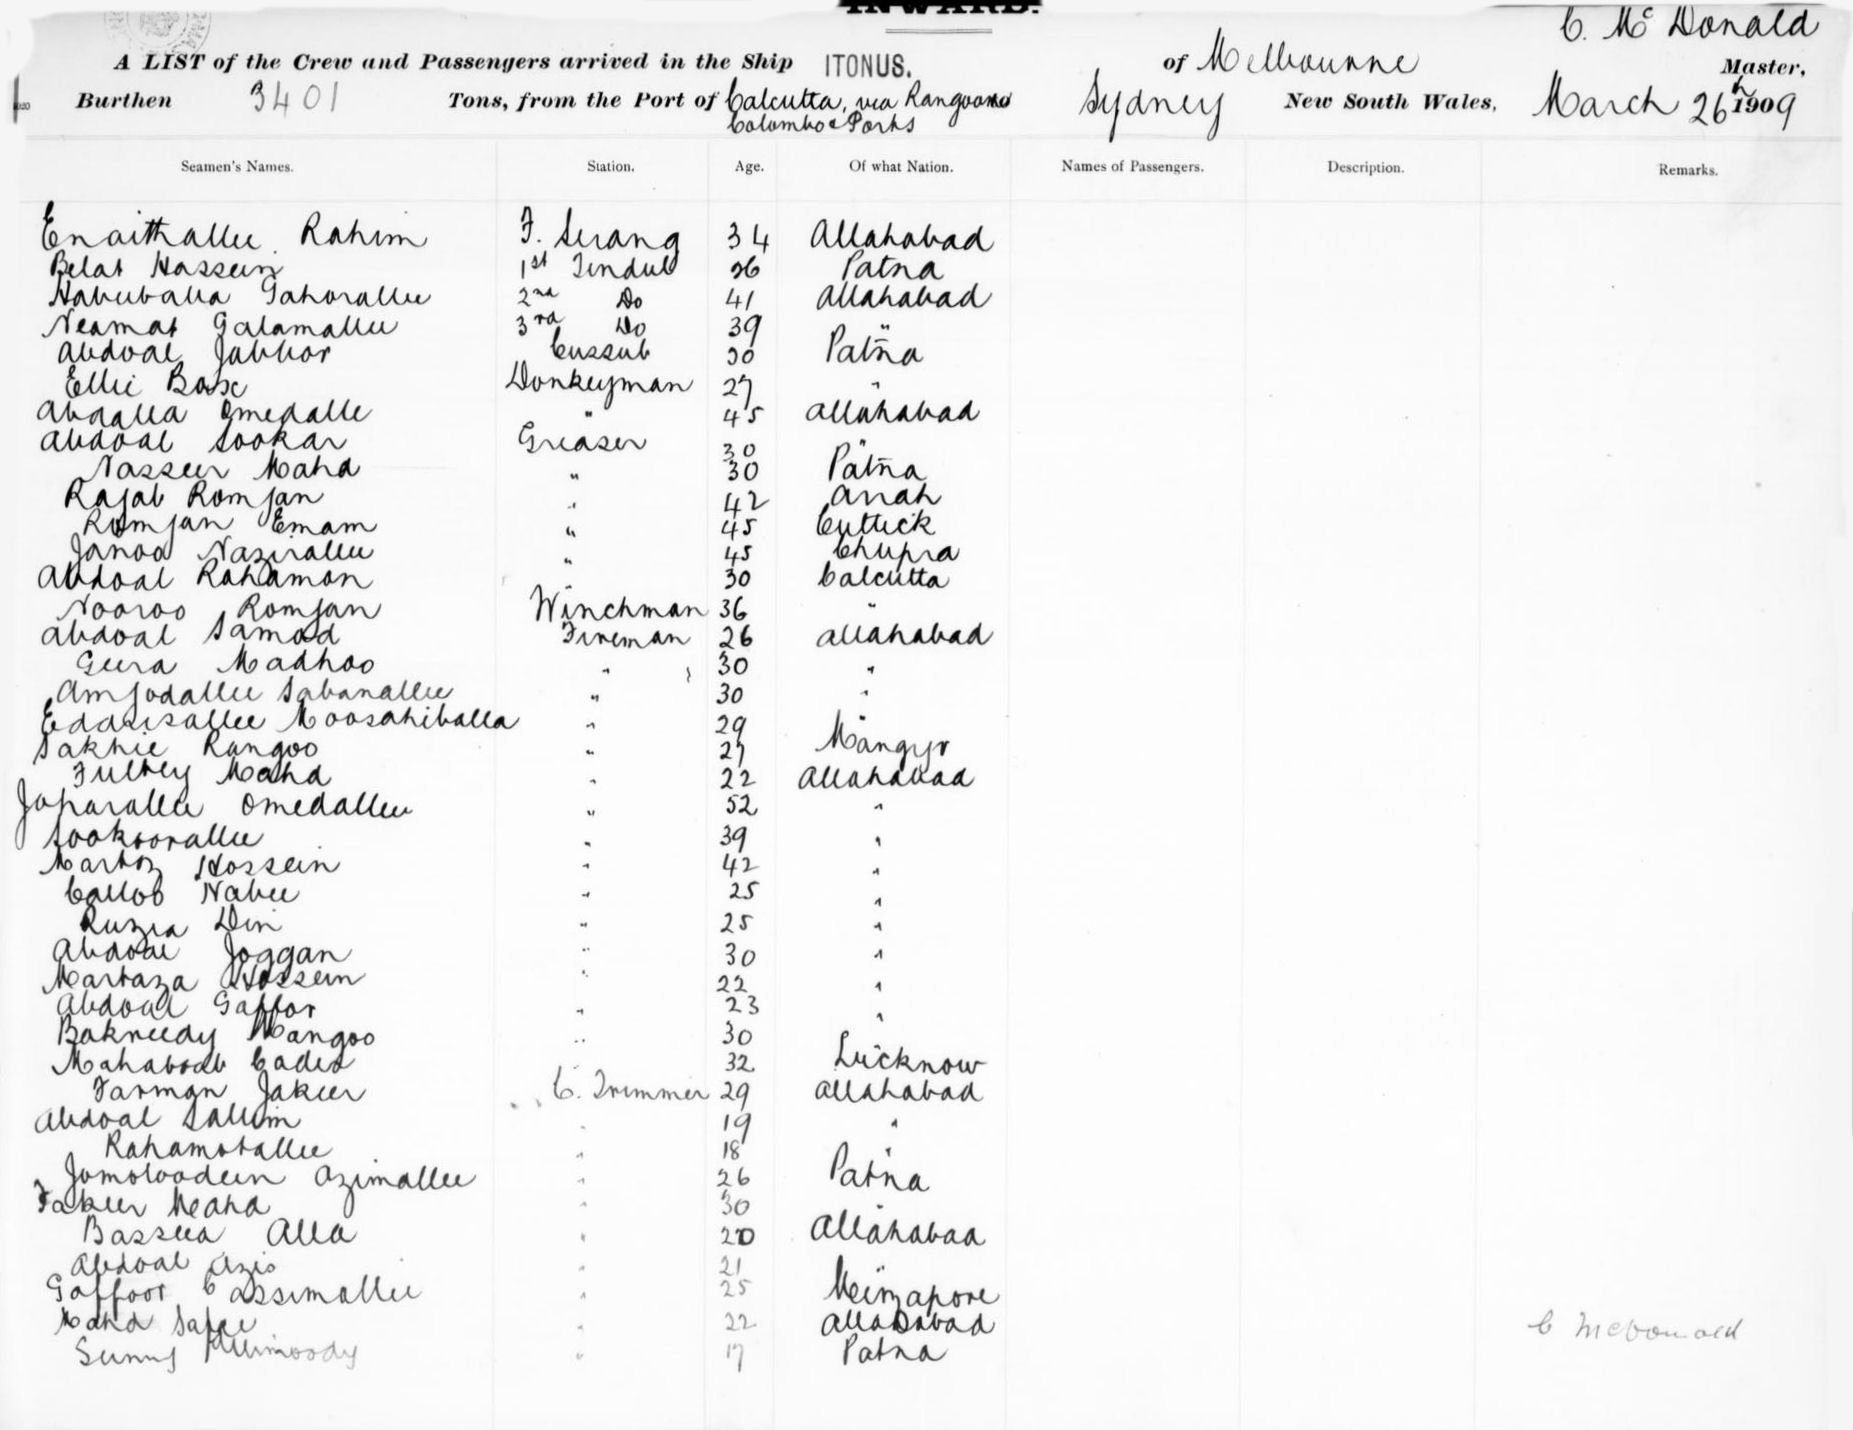 INWARD.
C. McDonald
A LIST of the Crew and Passengers arrived in the Ship ITONUS. of Melbourne Master,
Burthen 3401 Tons, from the Port of Calcutta, via Rangoon Sydney New South Wales, March 26th 1909
Colombo & Ports
Seamen's Names. Station. Age. Of what Nation. Names of Passengers. Description. Remarks.
Enaithallee Rahim F. Serang 34 Allahabad
Belat Hossein 1st Tindul 26 Patna
Habuballa Gahorallee 2nd Do 41 Allahabad
Neamat Golamallee 3rd Do 39 "
Abdoal Jabbor Cussub 30 Patna
Ellie Box Donkeyman 27 "
Abdalla Omedalle " 45 Allahabad
Abdoal Sookar Greaser 30 "
Nasseer Mahd " 30 Patna
Rajab Romjan " 42 Arrah
Romjan Emam " 45 Cuttick
Janoo Nazirallee " 45 Chupra
Abdoal Rahaman 30 Calcutta
Nooroo Romjan Winchman 36 "
Abdoal Samad Fireman 26 Allahabad
Geera Madhoo " 30 "
Amjodallee Sabanallee " 30 "
Eddrisallee Moosahiballa " 29 "
Sakhie Rangoo " 27 Mangyr
Fultey Mahd " 22 Allahabad
Japarallee Omedallee " 52 "
Sookoorallee " 39 "
Hossein " 42 "
Callob Nabee " 25 "
Ruzia Din " 25 "
Abdoal Joggan " 30 "
Martaza Hossein " 22 "
Abdoal Gaffor " 23 "
Bakreedy Mangoo " 30
Mahaboob Cader " 32 Lucknow
Farman Jakeer C. Trimmer 29 Allahabad
Abdoal Salum " 19 "
Rahamotallee " 18 "
Jomoloodeen Azimallee " 26 Patna
Fakeer Mahd " 30 "
Basseea Alla " 20 Allahabad
Abdoal Azis " 21 "
Gaffoor Cassimallee " 25 Meirzapore
Mahd Safee " 22 Allahabad
C McDonald
Sunny " 17 Patna